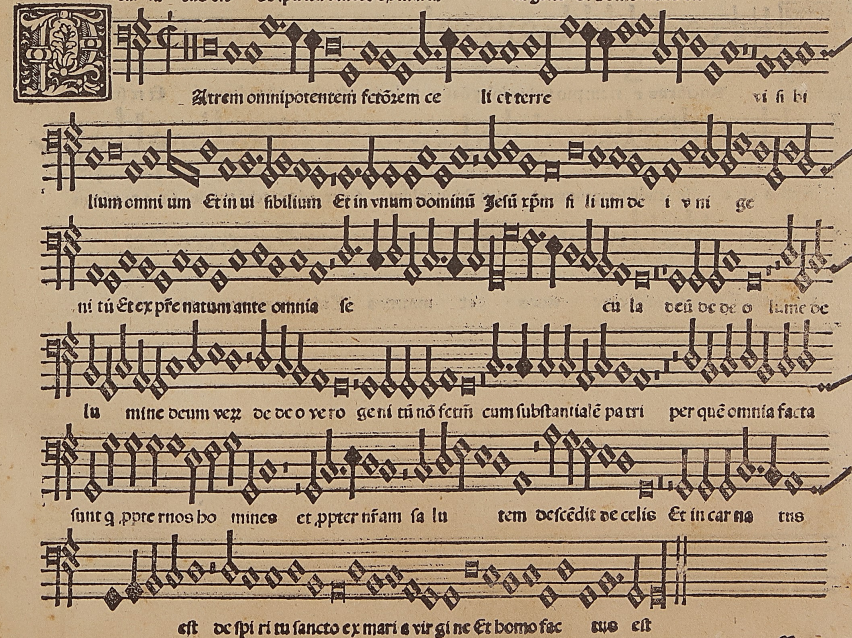 Atrem omnipotentem fctōꝛem ce li et terre vi si bi
lium omni um Et in ui sibilium Et in vnum dominū Jesū xp̄m fi li um de i v ni ge
ni tū Et ex pr̄e natum ante omnia se cu la deū de de o lume de
lu mine deum veꝝ de de o ve ro ge ni tū nō fctm̄ cum substantialē pa tri per quē omnia facta
sunt q ꝓpte r nos ho mines et ꝓpter nr̄am sa lu tem descēdit de celis Et in car na tus
est de spi ri tu sancto ex mari a vir gi ne Et homo fac tus est